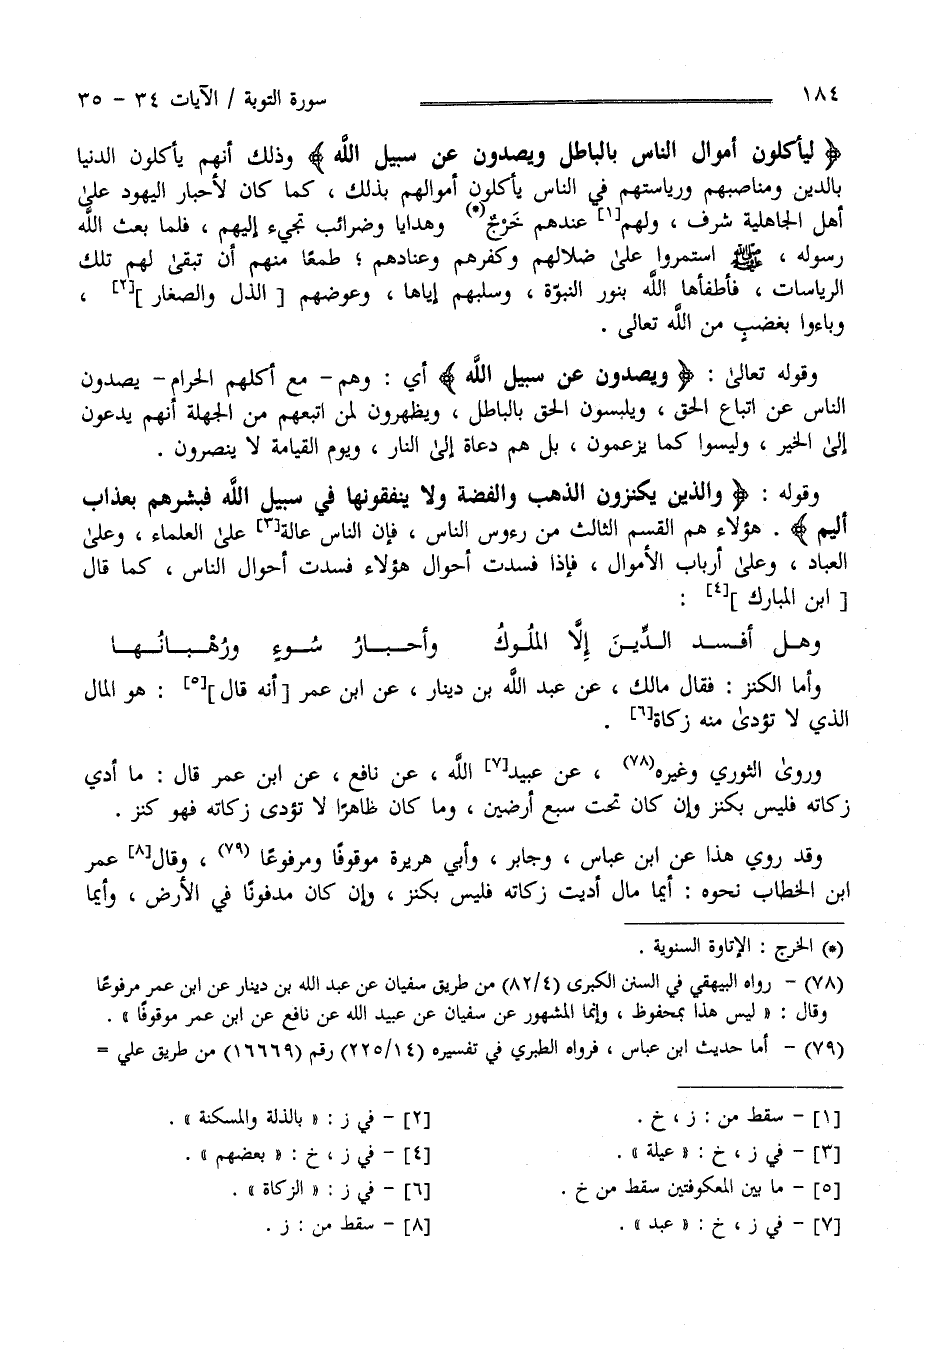 ١٨٤ سورة التوبة / الآيات ٣٤ - ٣٥
﴿ ليأكلون أموال الناس بالباطل ويصدون عن سبيل اللَّه ﴾ وذلك أنهم يأكلون الدنيا
بالدين ومناصبهم ورياستهم في الناس يأكلون أموالهم بذلك ، كما كان لأحبار اليهود علىٰ
أهل الجاهلية شرف ، ولهم[١] عندهم خَرْجٌ(*) وهدايا وضرائب تجيء إليهم ، فلما بعث اللَّه
رسوله ، ﷺ استمروا علىٰ ضلالهم وكفرهم وعنادهم ؛ طمعًا منهم أن تبقىٰ لهم تلك
الرياسات ، فأطفأها اللَّه بنور النبوّة ، وسلبهم إياها ، وعوضهم [ الذل والصغار ][٢] ،
وباءوا بغضبٍ من اللَّه تعالى .
وقوله تعالىٰ : ﴿ ويصدون عن سبيل اللَّه ﴾ أي : وهم- مع أكلهم الحرام- يصدون
الناس عن اتباع الحق ، ويلبسون الحق بالباطل ، ويظهرون لمن اتبعهم من الجهلة أنهم يدعون
إلىٰ الخير ، وليسوا كما يزعمون ، بل هم دعاة إلىٰ النار ، ويوم القيامة لا ينصرون .
وقوله : ﴿ والذين يكنزون الذهب والفضة ولا ينفقونها في سبيل اللَّه فبشرهم بعذاب
أليم ﴾ . هؤلاء هم القسم الثالث من رءوس الناس ، فإن الناس عالة[٣] علىٰ العلماء ، وعلىٰ
العباد ، وعلىٰ أرباب الأموال ، فإذا فسدت أحوال هؤلاء فسدت أحوال الناس ، كما قال
[ ابن المبارك ][٤] :
وهـل أفـسـد الـدِّيـنَ إِلَّا المُلُوكُ وأحـبـارُ سُـوءٍ ورُهْـبـانُـهـا
وأما الكنز : فقال مالك ، عن عبد اللَّه بن دينار ، عن ابن عمر [أنه قال][٥] : هو المال
الذي لا تؤدىٰ منه زكاة[٦] .
وروىٰ الثوري وغيره(٧٨) ، عن عبيد[٧] اللَّه ، عن نافع ، عن ابن عمر قال : ما أدي
زكاته فليس بكنز وإن كان تحت سبع أرضين ، وما كان ظاهرًا لا تؤدى زكاته فهو كنز .
وقد روي هذا عن ابن عباس ، وجابر ، وأبي هريرة موقوفًا ومرفوعًا (٧٩) ، وقال[٨] عمر
ابن الخطاب نحوه : أيما مال أديت زكاته فليس بكنز ، وإن كان مدفونًا في الأرض ، وأيما
(*) الخرج : الإتاوة السنوية .
(٧٨) - رواه البيهقي في السنن الكبرى (٨٢/٤) من طريق سفيان عن عبد الله بن دينار عن ابن عمر مرفوعًا
وقال : « ليس هذا بمحفوظ ، وإنما المشهور عن سفيان عن عبيد الله عن نافع عن ابن عمر موقوفًا » .
(٧٩) - أما حديث ابن عباس ، فرواه الطبري في تفسيره (٢٢٥/١٤) رقم (١٦٦٦٩) من طريق علي =
[١] - سقط من : ز ، خ . [٢] - في ز : « بالذلة والمسكنة » .
[٣] - في ز ، خ : « عيلة » . [٤] - في ز ، خ : « بعضهم » .
[٥] - ما بين المعكوفتين سقط من خ . [٦] - في ز : « الزكاة » .
[٧] - في ز ، خ : « عبد » . [٨] - سقط من : ز .